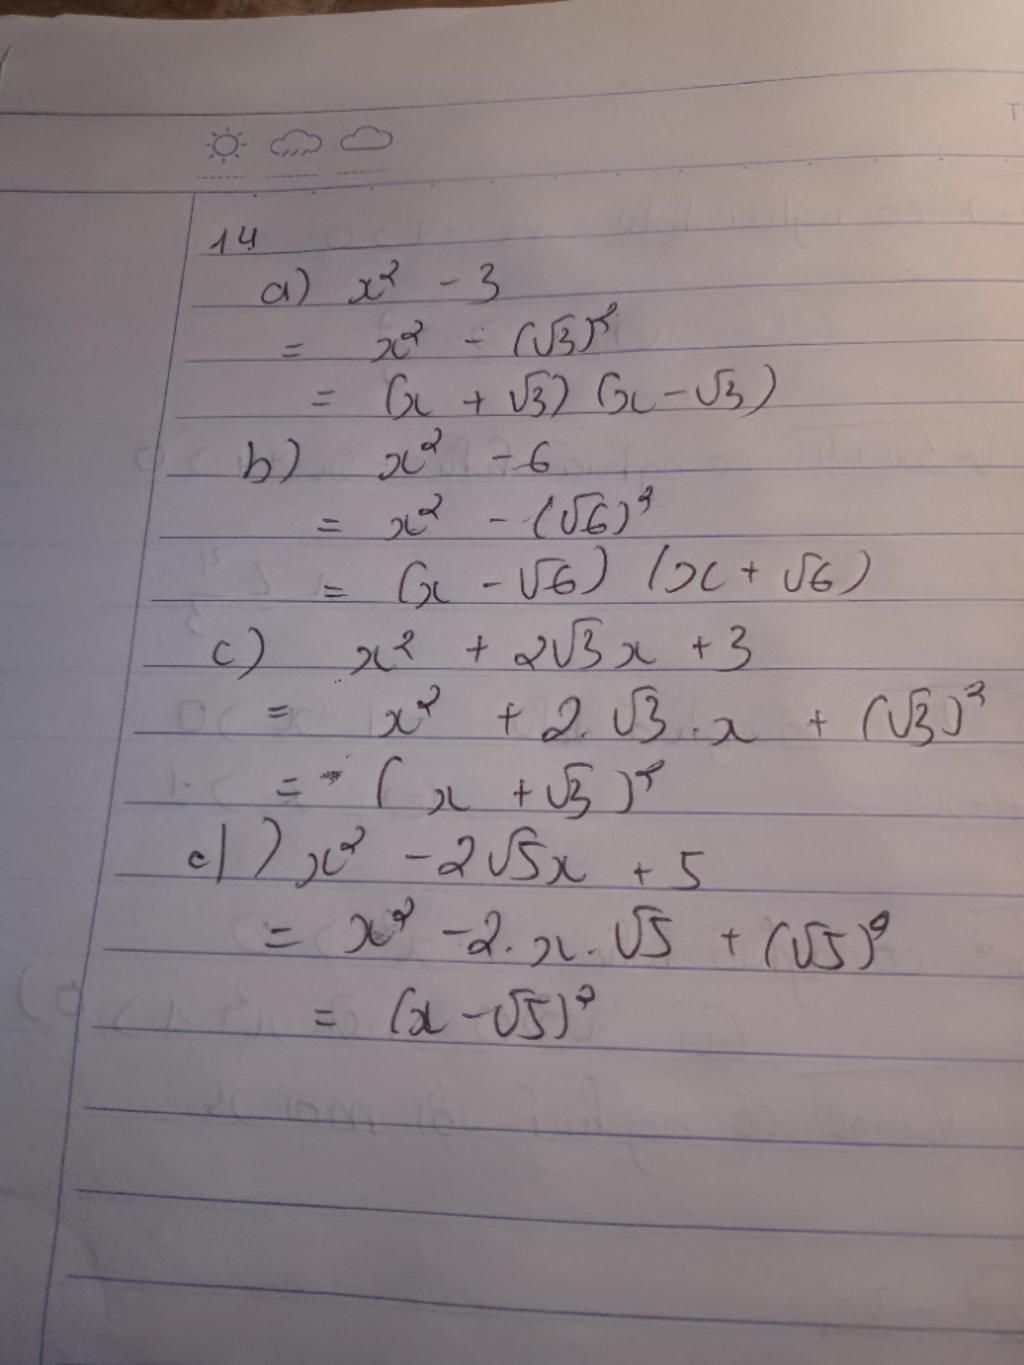 14
a) x² - 3
= x² - (√3)²
= (x + √3) (x - √3)
b) x² - 6
= x² - (√6)²
= (x - √6) (x + √6)
c) x² + 2√3x + 3
= x² + 2.√3.x + (√3)²
= (x + √3)²
d) x² - 2√5x + 5
= x² - 2.x.√5 + (√5)²
= (x - √5)²